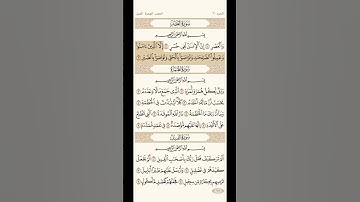 الجزء ٣٠ العصر، الهمزة، الفيل
سُورَةُ العَصْرِ
بِسْمِ ٱللَّهِ ٱلرَّحْمَٰنِ ٱلرَّحِيمِ
وَٱلْعَصْرِ ١ إِنَّ ٱلْإِنسَٰنَ لَفِى خُسْرٍ ٢ إِلَّا ٱلَّذِينَ ءَامَنُوا۟
وَعَمِلُوا۟ ٱلصَّٰلِحَٰتِ وَتَوَاصَوْا۟ بِٱلْحَقِّ وَتَوَاصَوْا۟ بِٱلصَّبْرِ ٣
سُورَةُ الهُمَزَةِ
بِسْمِ ٱللَّهِ ٱلرَّحْمَٰنِ ٱلرَّحِيمِ
وَيْلٌ لِّكُلِّ هُمَزَةٍ لُّمَزَةٍ ١ ٱلَّذِى جَمَعَ مَالًا وَعَدَّدَهُۥ ٢
يَحْسَبُ أَنَّ مَالَهُۥٓ أَخْلَدَهُۥ ٣ كَلَّا لَيُنۢبَذَنَّ فِى ٱلْحُطَمَةِ ٤
وَمَآ أَدْرَىٰكَ مَا ٱلْحُطَمَةُ ٥ نَارُ ٱللَّهِ ٱلْمُوقَدَةُ ٦ ٱلَّتِى تَطَّلِعُ
عَلَى ٱلْأَفْـِٔدَةِ ٧ إِنَّهَا عَلَيْهِم مُّؤْصَدَةٌ ٨ فِى عَمَدٍ مُّمَدَّدَةٍۭ ٩
سُورَةُ الفِيلِ
بِسْمِ ٱللَّهِ ٱلرَّحْمَٰنِ ٱلرَّحِيمِ
أَلَمْ تَرَ كَيْفَ فَعَلَ رَبُّكَ بِأَصْحَٰبِ ٱلْفِيلِ ١ أَلَمْ يَجْعَلْ
كَيْدَهُمْ فِى تَضْلِيلٍ ٢ وَأَرْسَلَ عَلَيْهِمْ طَيْرًا أَبَابِيلَ ٣
تَرْمِيهِم بِحِجَارَةٍ مِّن سِجِّيلٍ ٤ فَجَعَلَهُمْ كَعَصْفٍ مَّأْكُولٍۭ ٥